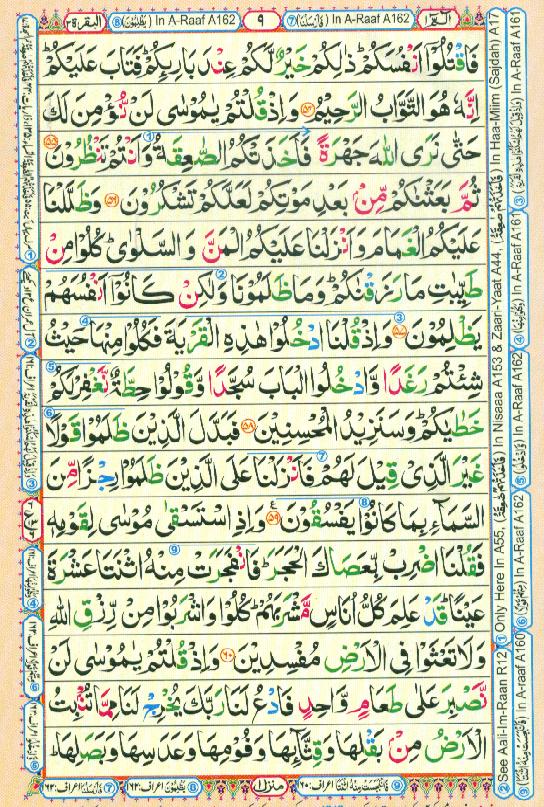 البقرة ٢
⑧ (يَظْلِمُوْنَ) In A-Raaf A162
٩
⑦ (فَاَرْسَلْنَا) In A-Raaf A162
الٓمّٓ ١
فَاقْتُلُوْۤا اَنْفُسَكُمْ ؕ ذٰلِكُمْ خَيْرٌ لَّكُمْ عِنْدَ بَارِىِٕكُمْ ؕ فَتَابَ عَلَيْكُمْ ؕ
اِنَّهٗ هُوَ التَّوَّابُ الرَّحِيْمُ ﴿۵۴﴾ وَاِذْ قُلْتُمْ يٰمُوْسٰى لَنْ نُّؤْمِنَ لَكَ
حَتّٰى نَرَى اللّٰهَ جَهْرَةً فَاَخَذَتْكُمُ الصّٰعِقَةُ وَاَنْتُمْ تَنْظُرُوْنَ ﴿۵۵﴾
ثُمَّ بَعَثْنٰكُمْ مِّنْۢ بَعْدِ مَوْتِكُمْ لَعَلَّكُمْ تَشْكُرُوْنَ ﴿۵۶﴾ وَظَلَّلْنَا
عَلَيْكُمُ الْغَمَامَ وَاَنْزَلْنَا عَلَيْكُمُ الْمَنَّ وَالسَّلْوٰى ؕ كُلُوْا مِنْ
طَيِّبٰتِ مَا رَزَقْنٰكُمْ ؕ وَمَا ظَلَمُوْنَا وَلٰكِنْ كَانُوْۤا اَنْفُسَهُمْ
يَظْلِمُوْنَ ﴿۵۷﴾ وَاِذْ قُلْنَا ادْخُلُوْا هٰذِهِ الْقَرْيَةَ فَكُلُوْا مِنْهَا حَيْثُ
شِئْتُمْ رَغَدًا وَّادْخُلُوا الْبَابَ سُجَّدًا وَّقُوْلُوْا حِطَّةٌ نَّغْفِرْ لَكُمْ
خَطٰيٰكُمْ ؕ وَسَنَزِيْدُ الْمُحْسِنِيْنَ ﴿۵۸﴾ فَبَدَّلَ الَّذِيْنَ ظَلَمُوْا قَوْلًا
غَيْرَ الَّذِىْ قِيْلَ لَهُمْ فَاَنْزَلْنَا عَلَى الَّذِيْنَ ظَلَمُوْا رِجْزًا مِّنَ
السَّمَآءِ بِمَا كَانُوْا يَفْسُقُوْنَ ﴿۵۹﴾ وَاِذِ اسْتَسْقٰى مُوْسٰى لِقَوْمِهٖ
فَقُلْنَا اضْرِبْ بِّعَصَاكَ الْحَجَرَ ؕ فَانْفَجَرَتْ مِنْهُ اثْنَتَا عَشْرَةَ
عَيْنًا ؕ قَدْ عَلِمَ كُلُّ اُنَاسٍ مَّشْرَبَهُمْ ؕ كُلُوْا وَاشْرَبُوْا مِنْ رِّزْقِ اللّٰهِ
وَلَا تَعْثَوْا فِى الْاَرْضِ مُفْسِدِيْنَ ﴿۶۰﴾ وَاِذْ قُلْتُمْ يٰمُوْسٰى لَنْ
نَّصْبِرَ عَلٰى طَعَامٍ وَّاحِدٍ فَادْعُ لَنَا رَبَّكَ يُخْرِجْ لَنَا مِمَّا تُنْۢبِتُ
الْاَرْضُ مِنْۢ بَقْلِهَا وَقِثَّآىِٕهَا وَفُوْمِهَا وَعَدَسِهَا وَبَصَلِهَا ؕ
② See Aali-Im-Raan R12 ① Only Here In A55, In Nisaaa A153 & Zaar-Yaat A44, In Haa-Miim (Sajdah) A17
In A-raaf A160 ⑥ In A-Raaf A162 ⑤ In A-Raaf A162 ④ In A-Raaf A161 ③ In A-Raaf A161
منزل ١